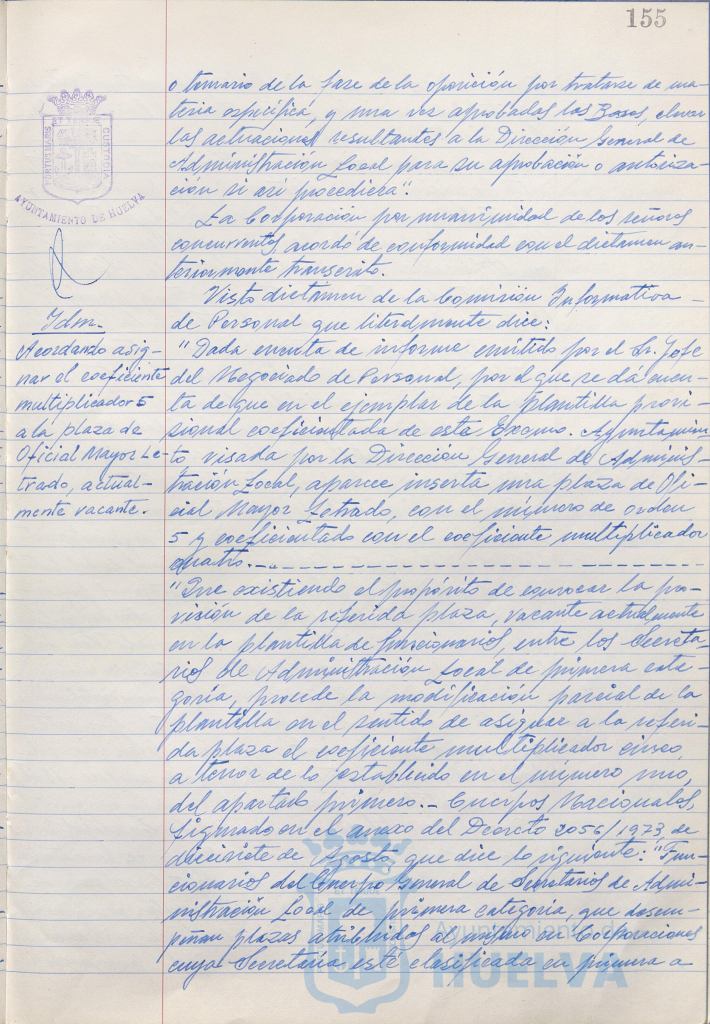 155
PORTVS MARIS ET TERRE CUSTODIA
AYUNTAMIENTO DE HUELVA
o temario de la fase de la oposición por tratarse de ma-
teria específica, y una vez aprobadas las Bases, elevar
las actuaciones resultantes a la Dirección General de
Administración Local para su aprobación o autoriza-
ción si así procediera".
La Corporación por unanimidad de los señores
concurrentes, acordó de conformidad con el dictamen an-
teriormente transcrito.
Visto dictamen de la Comisión Informativa
de Personal que literalmente dice:
Idm.
Acordando asig-
nar el coeficiente
multiplicador 5
a la plaza de
Oficial Mayor Le-
trado, actual-
mente vacante.
"Dada cuenta de informe emitido por el Sr. Jefe
del Negociado de Personal, por el que se dá cuen-
ta de que en el ejemplar de la plantilla provi-
sional coeficientada de este Excmo. Ayuntamien-
to visada por la Dirección General de Adminis-
tración Local, aparece inserta una plaza de Ofi-
cial Mayor Letrado, con el número de orden
5 y coeficientado con el coeficiente multiplicador
cuatro.
"Que existiendo el propósito de convocar la pro-
visión de la referida plaza, vacante actualmente
en la plantilla de funcionarios, entre los Secreta-
rios de Administración Local de primera cate-
goría, procede la modificación parcial de la
plantilla en el sentido de asignar a la referi-
da plaza el coeficiente multiplicador cinco,
a tenor de lo establecido en el número uno,
del apartado primero.- Cuerpos Nacionales,
figurado en el anexo del Decreto 2056/1973, de
diecisiete de Agosto, que dice lo siguiente: "Fun-
cionarios del Cuerpo General de Secretarios de Admi-
nistración Local de primera categoría, que desem-
peñan plazas atribuidas al mismo en Corporaciones
cuya Secretaría esté clasificada en primera a
Ayuntamiento de
HUELVA